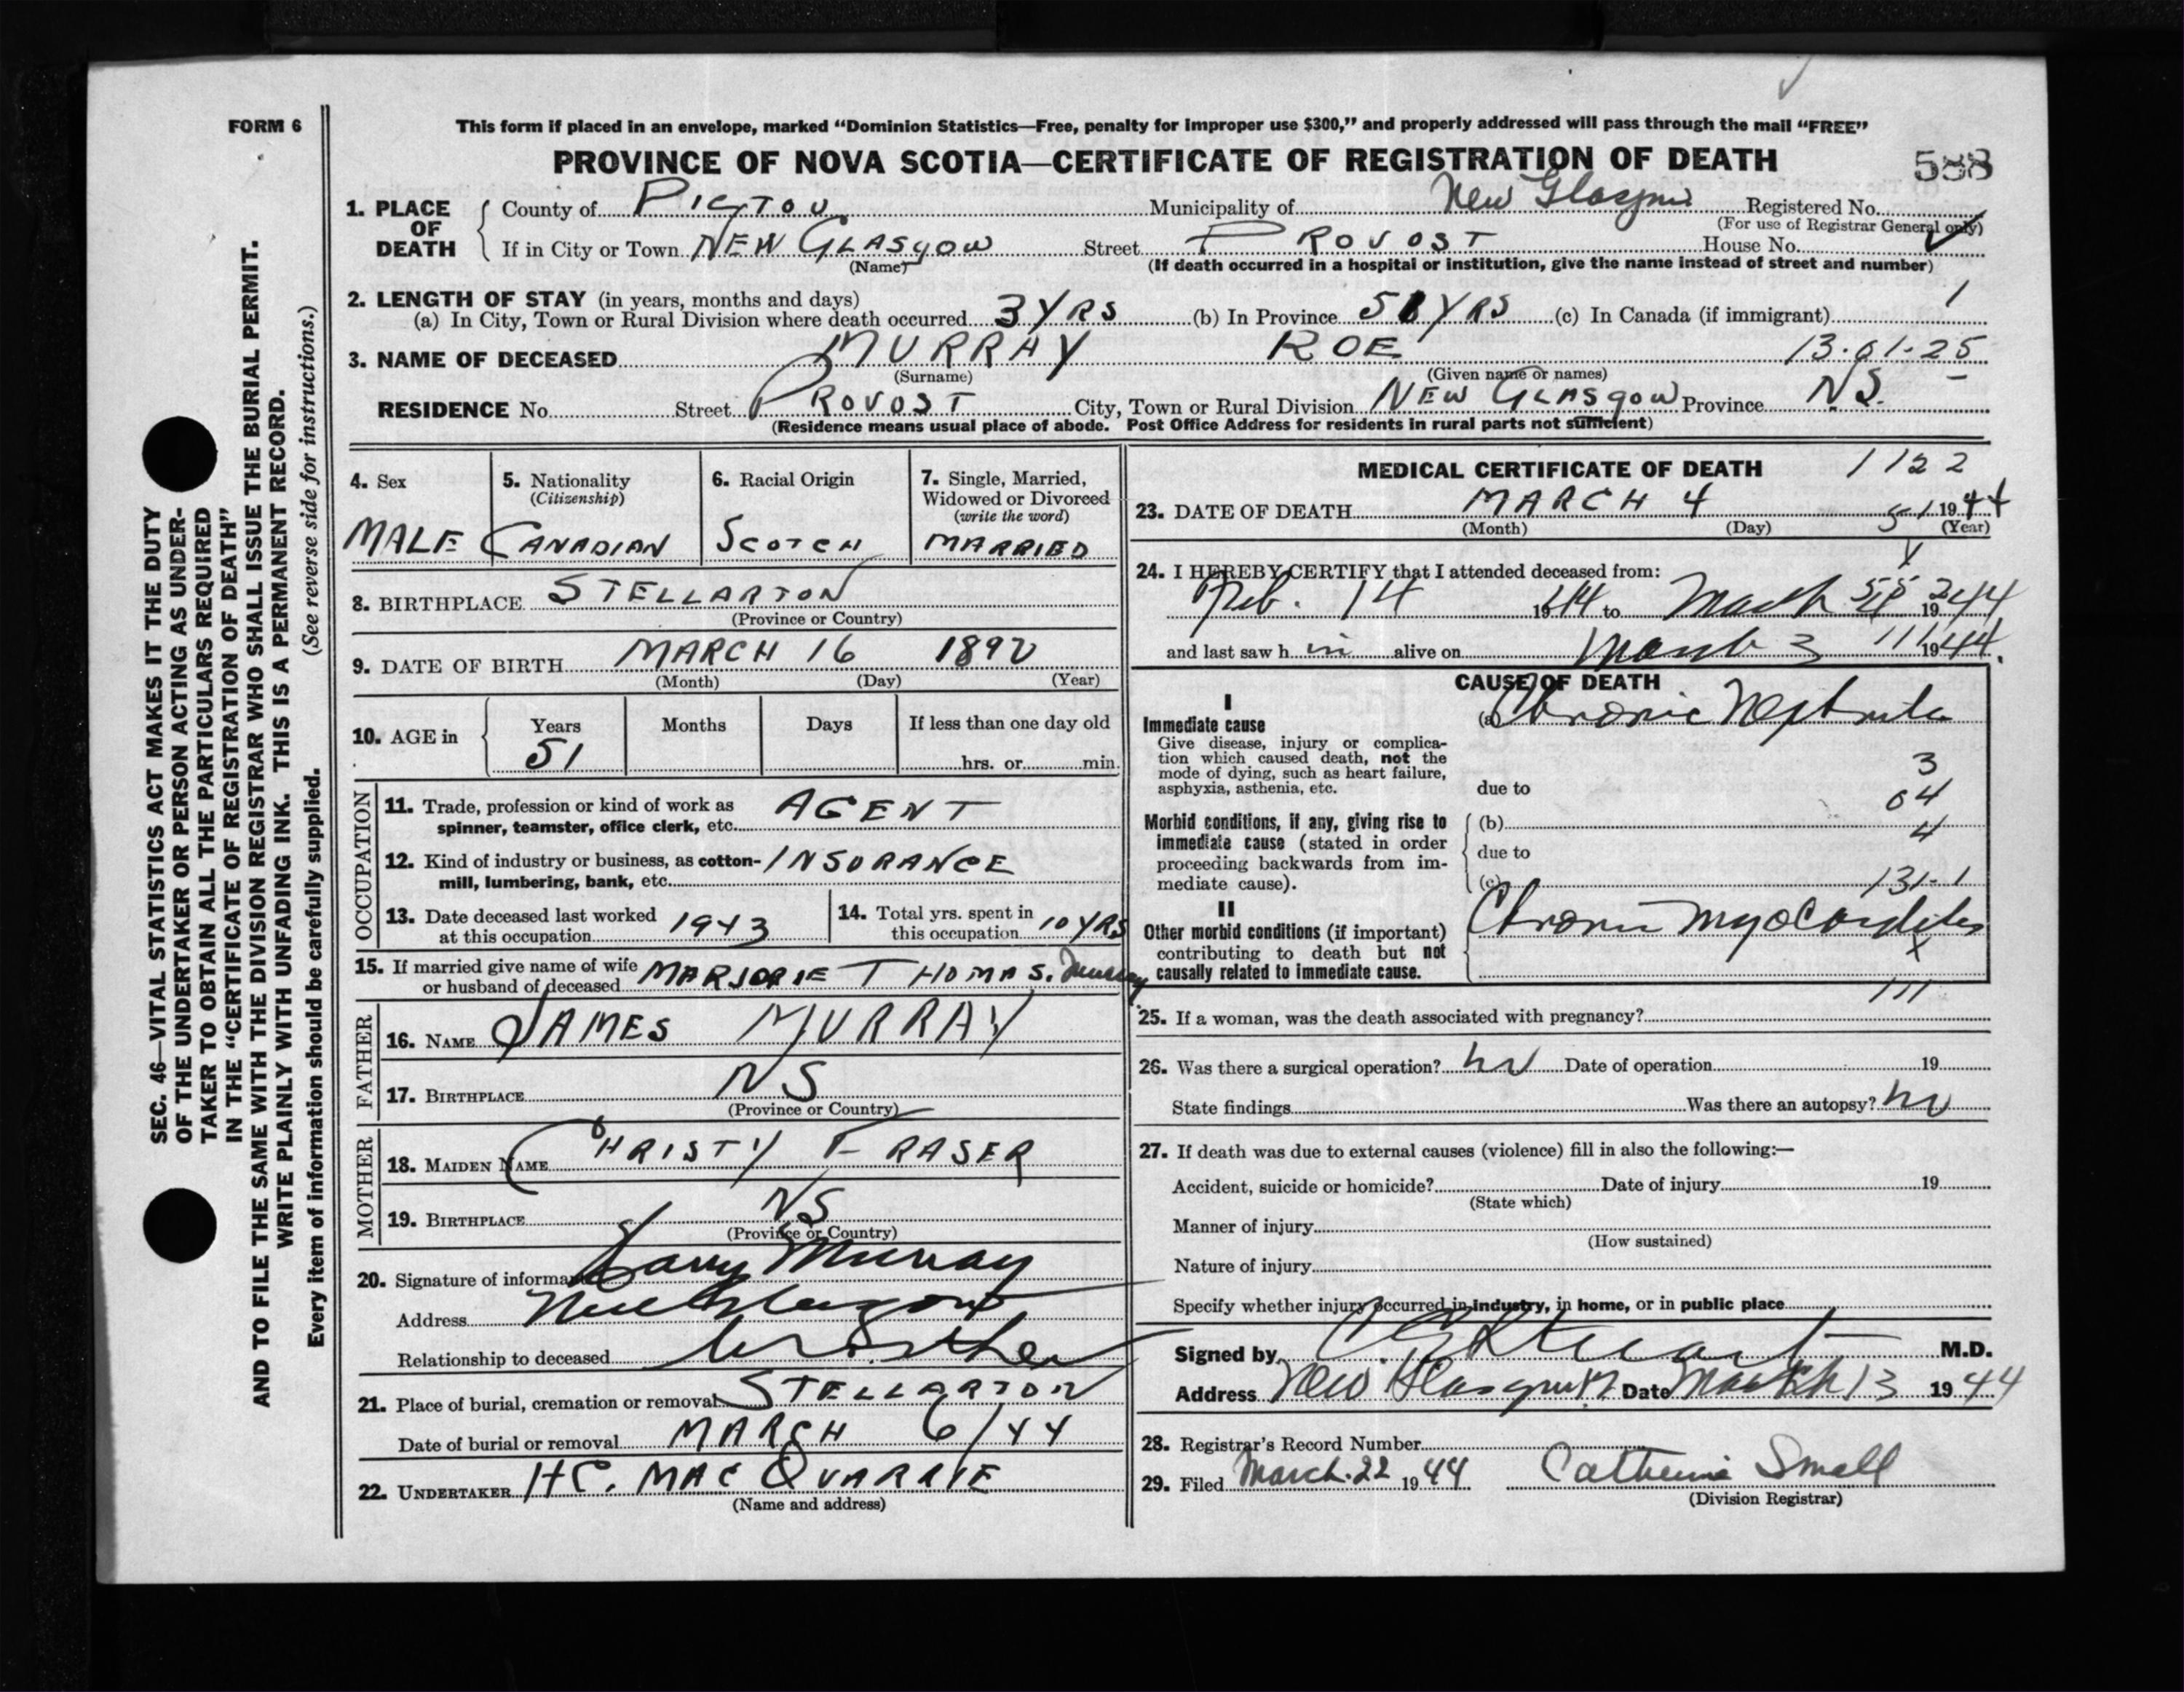 FORM 6
This form if placed in an envelope, marked “Dominion Statistics—Free, penalty for improper use $300,” and properly addressed will pass through the mail “FREE”
PROVINCE OF NOVA SCOTIA—CERTIFICATE OF REGISTRATION OF DEATH
588
1. PLACE OF DEATH
County of PICTOU Municipality of New Glasgow Registered No.
(For use of Registrar General only)
If in City or Town NEW GLASGOW Street PROVOST House No.
(Name)
(If death occurred in a hospital or institution, give the name instead of street and number)
2. LENGTH OF STAY (in years, months and days) 1
(a) In City, Town or Rural Division where death occurred 3 YRS (b) In Province 51 YRS (c) In Canada (if immigrant)
3. NAME OF DECEASED MURRAY ROE 13-01-25
(Surname) (Given name or names)
RESIDENCE No. Street PROVOST City, Town or Rural Division NEW GLASGOW Province N.S.
(Residence means usual place of abode. Post Office Address for residents in rural parts not sufficient)
4. Sex MALE
5. Nationality
(Citizenship)
CANADIAN
6. Racial Origin
SCOTCH
7. Single, Married,
Widowed or Divorced
(write the word)
MARRIED
8. BIRTHPLACE STELLARTON
(Province or Country)
9. DATE OF BIRTH MARCH 16 1892
(Month) (Day) (Year)
10. AGE in Years Months Days If less than one day old
51 hrs. or min.
OCCUPATION
11. Trade, profession or kind of work as AGENT
spinner, teamster, office clerk, etc.
12. Kind of industry or business, as cotton- INSURANCE
mill, lumbering, bank, etc.
13. Date deceased last worked
at this occupation 1943
14. Total yrs. spent in
this occupation 10 YRS
15. If married give name of wife
or husband of deceased MARJORIE THOMAS. Murray
FATHER
16. NAME JAMES MURRAY
17. BIRTHPLACE NS
(Province or Country)
MOTHER
18. MAIDEN NAME CHRISTY FRASER
19. BIRTHPLACE NS
(Province or Country)
20. Signature of informant Harry Murray
Address New Glasgow
Relationship to deceased brother
21. Place of burial, cremation or removal STELLARTON
Date of burial or removal MARCH 6/44
22. UNDERTAKER H.C. MACQUARRIE
(Name and address)
MEDICAL CERTIFICATE OF DEATH 1122
23. DATE OF DEATH MARCH 4 51 1944
(Month) (Day) (Year)
24. I HEREBY CERTIFY that I attended deceased from:
Feb. 14 1944 to March 1944
and last saw h im alive on March 3 1944.
CAUSE OF DEATH
I
Immediate cause
Give disease, injury or complica-
tion which caused death, not the
mode of dying, such as heart failure,
asphyxia, asthenia, etc.
(a) Chronic Nephritis
due to
3
04
4
Morbid conditions, if any, giving rise to
immediate cause (stated in order
proceeding backwards from im-
mediate cause).
(b)
due to
(c) 131-1
II
Other morbid conditions (if important)
contributing to death but not
causally related to immediate cause.
Chronic Myocarditis
X
111
25. If a woman, was the death associated with pregnancy?
26. Was there a surgical operation? no Date of operation 19
State findings Was there an autopsy? no
27. If death was due to external causes (violence) fill in also the following:—
Accident, suicide or homicide? Date of injury 19
(State which)
Manner of injury
(How sustained)
Nature of injury
Specify whether injury occurred in industry, in home, or in public place
Signed by M.D.
Address New Glasgow Date March 13 1944
28. Registrar's Record Number
29. Filed March. 22 1944 Catherine Small
(Division Registrar)
SEC. 46—VITAL STATISTICS ACT MAKES IT THE DUTY
OF THE UNDERTAKER OR PERSON ACTING AS UNDER-
TAKER TO OBTAIN ALL THE PARTICULARS REQUIRED
IN THE “CERTIFICATE OF REGISTRATION OF DEATH”
AND TO FILE THE SAME WITH THE DIVISION REGISTRAR WHO SHALL ISSUE THE BURIAL PERMIT.
WRITE PLAINLY WITH UNFADING INK. THIS IS A PERMANENT RECORD.
Every item of information should be carefully supplied. (See reverse side for instructions.)